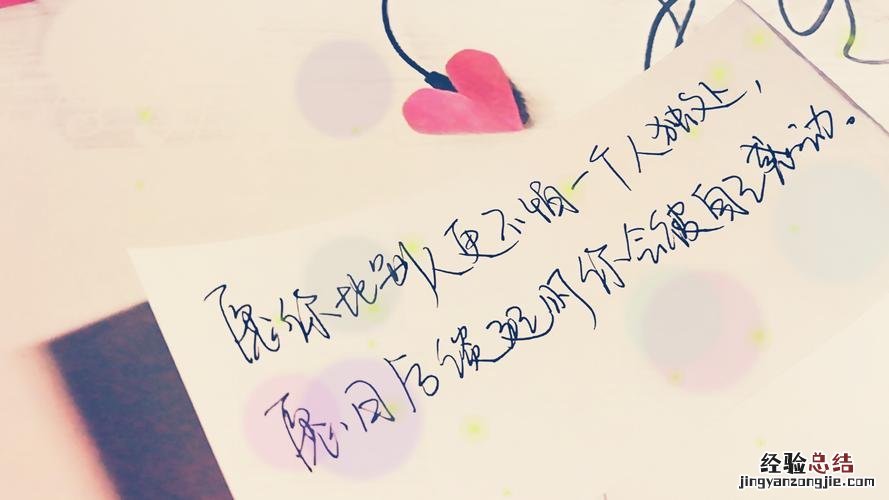 愿你比别人更不怕一个人独处，
愿日后谈起时你会被自己感动。
经验总结
jingyanzongjie.com